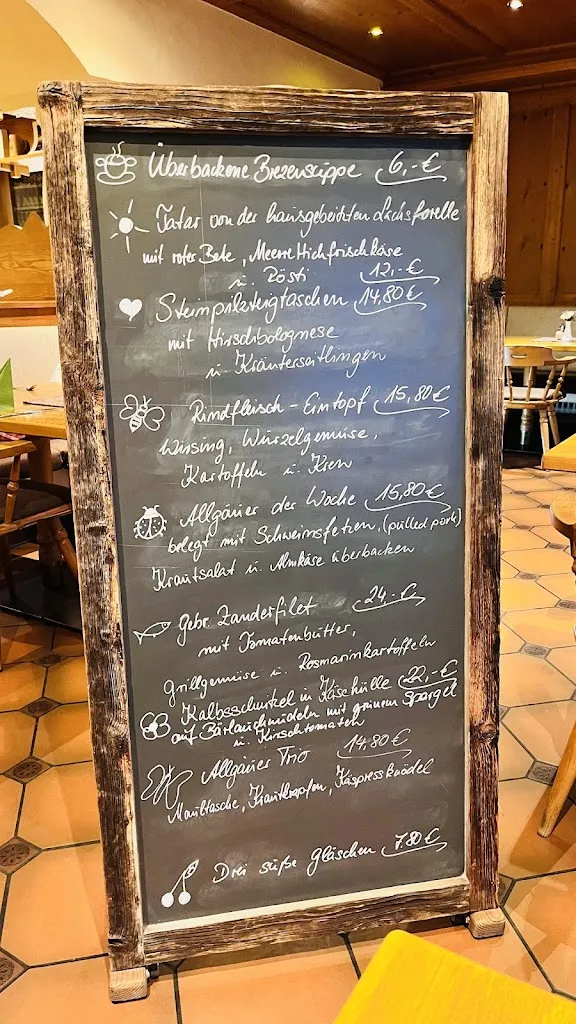 Überbackene Brezensuppe 6,-€
Tatar von der hausgebeizten Lachsforelle
mit roter Bete, Meerrettichfrischkäse
u. Rösti 12,-€
Steinpilzteigtaschen 14,80€
mit Hirschbolognese
u. Kräuterseitlingen
Rindfleisch-Eintopf 15,80€
Wirsing, Wurzelgemüse,
Kartoffeln u. Kren
Allgäuer der Woche 15,80€
belegt mit Schweinsfetzen, (pulled pork)
Krautsalat u. Almkäse überbacken
Gebr. Zanderfilet 24,-€
mit Tomatenbutter,
Grillgemüse u. Rosmarinkartoffeln
Kalbsschnitzel in Käsehülle 22,-€
auf Bärlauchnudeln mit grünem Spargel
u. Kirschtomaten
Allgäuer Trio 14,80€
Maultasche, Krautkrapfen, Kaspressknödel
Drei süße Gläschen 7,80€